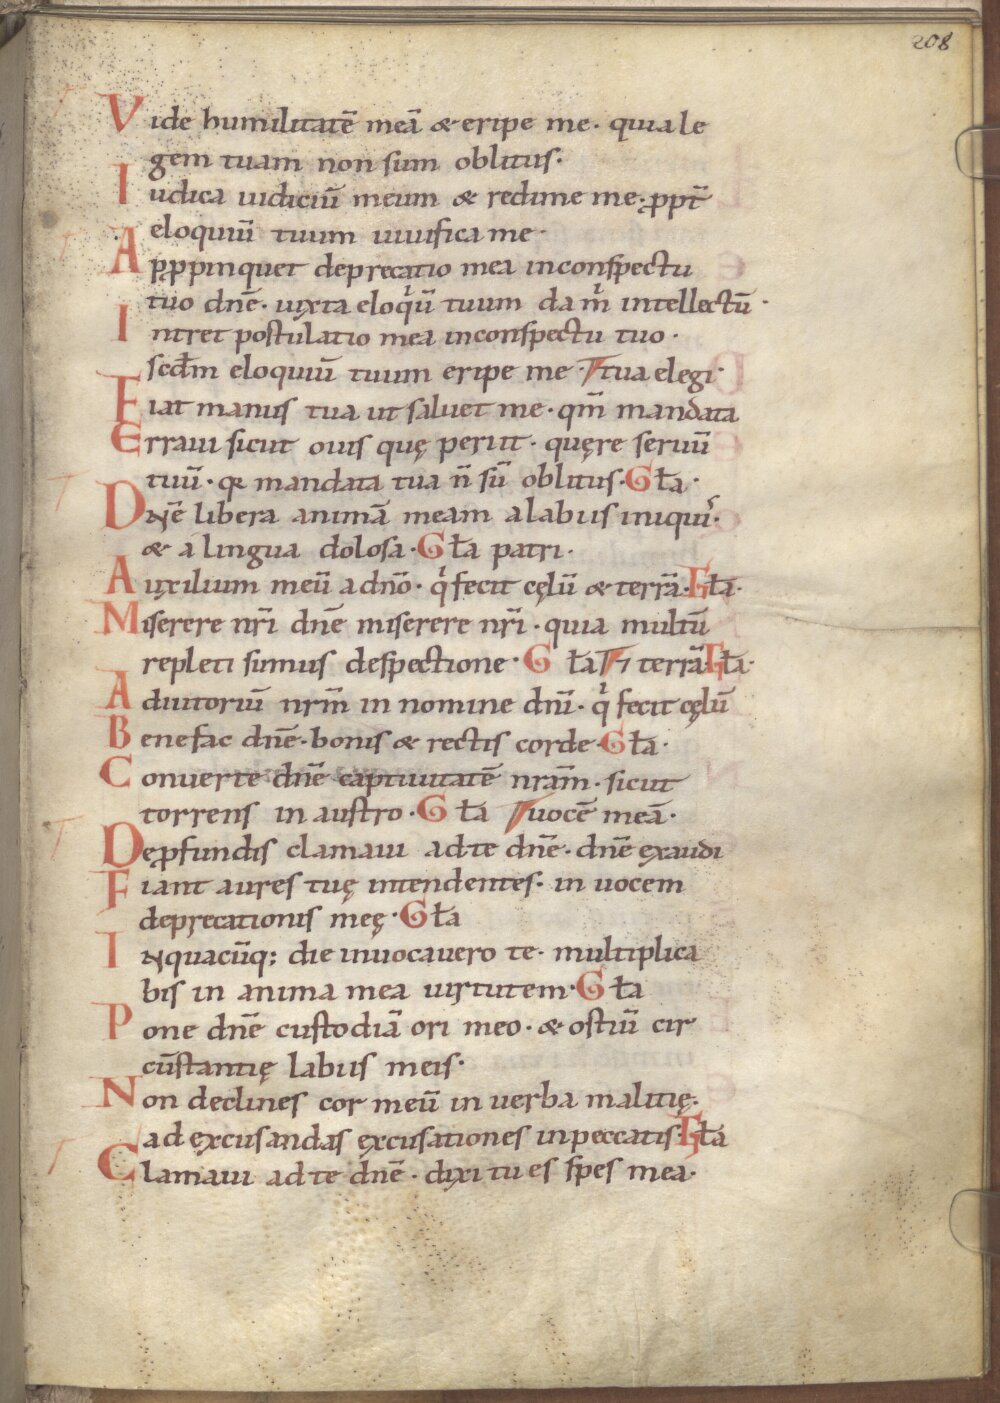 208
Vide humilitatē meā & eripe me· quia le
gem tuam non sum oblitus·
Iudica iudiciū meum & redime me· ꝓpt̄
eloquiū tuum uiuifica me·
Apꝓpinquet deprecatio mea inconspectu
tuo dnē· iuxta eloqͥū tuum da m̄ intellectū·
Intret postulatio mea inconspectu tuo·
scd̄m eloquiū tuum eripe me· tua elegi·
Fiat manus tua ut saluet me· qm̄ mandata
Erraui sicut ouis quę periit· quęre seruū
tuū· qꝛ mandata tua n̄ sū oblitus· Gła·
Dnē libera animā meam alabiis iniquis·
& alingua dolosa· Gła patri·
Auxilium meū adnō· qͥ fecit cęlū & terrā· Gła·
Miserere nr̄i dnē miserere nr̄i· quia multū
repleti sumus despectione· Gła ⁊ terrā Gła·
Adiutoriū nrm̄ in nomine dnī· qͥ fecit cęlū
Benefac dnē· bonis & rectis corde· Gła·
Conuerte dnē captiuitatē nram̄· sicut
torrens in austro· Gła uocē meā·
Deꝓfundis clamaui adte dnē· dnē exaudi
Fiant aures tuę intendentes· in uocem
deprecationis meę· Gła
Inquacūq; die inuocauero te· multiplica
bis in anima mea uirtutem· Gła
Pone dnē custodiā ori meo· & ostiū cir
cūstantię labiis meis·
Non declines cor meū in uerba malitię·
ad excusandas excusationes inpeccatis Gła
Clamaui adte dnē· dixi tu es spes mea·